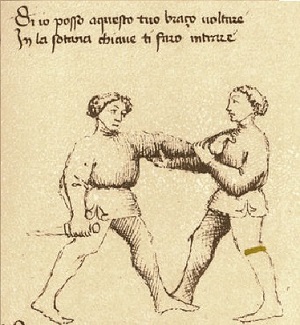 Si io posso aquesto tuo braço uoltare
In la sotana chiaue ti faro intrare